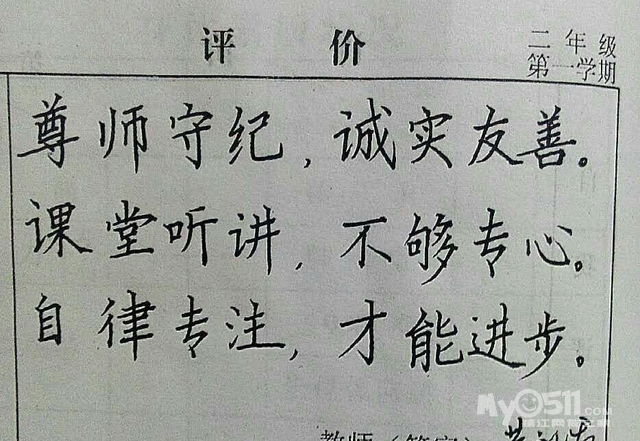 评 价
二年级
第一学期
尊师守纪，诚实友善。
课堂听讲，不够专心。
自律专注，才能进步。
My0511.com